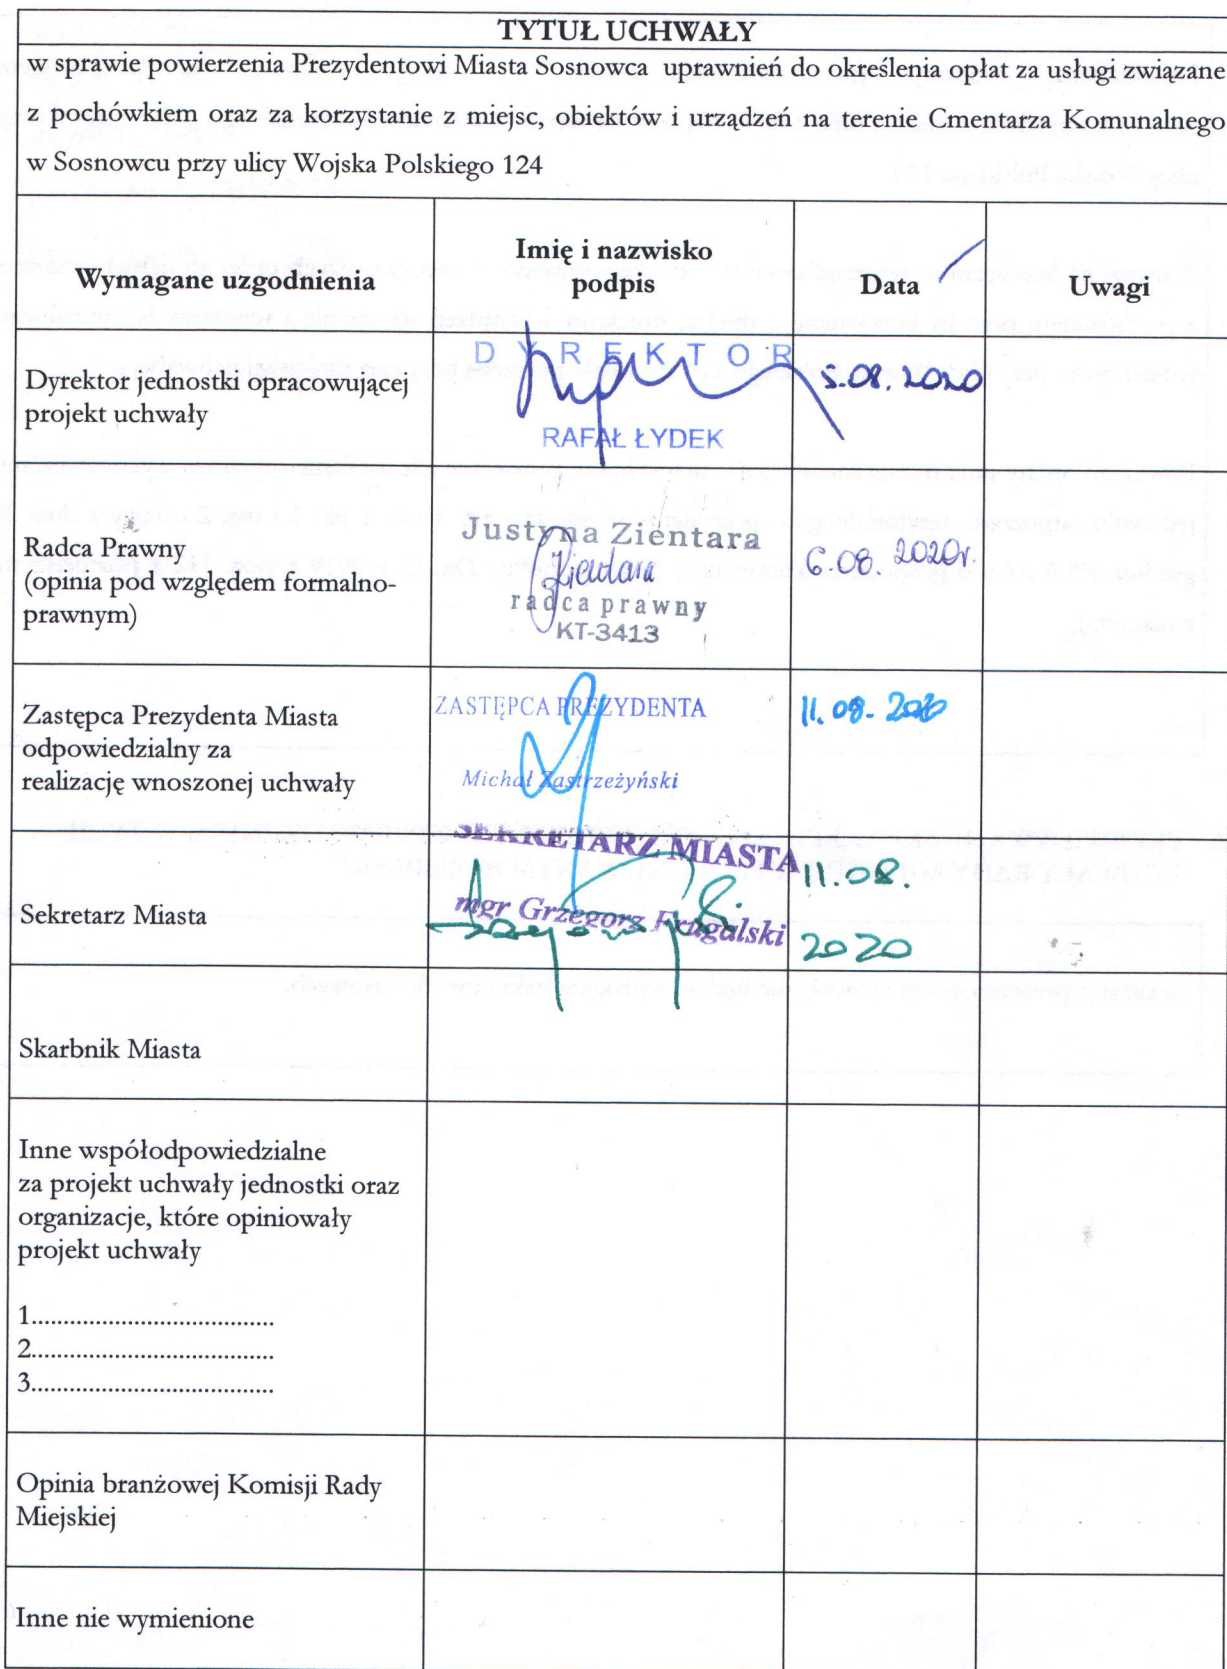 TYTUŁ UCHWAŁY
w sprawie powierzenia Prezydentowi Miasta Sosnowca uprawnień do określenia opłat za usługi związane
z pochówkiem oraz za korzystanie z miejsc, obiektów i urządzeń na terenie Cmentarza Komunalnego
w Sosnowcu przy ulicy Wojska Polskiego 124
Wymagane uzgodnienia
Imię i nazwisko
podpis
Data
Uwagi
Dyrektor jednostki opracowującej
projekt uchwały
DYREKTOR
RAFAŁ ŁYDEK
5.08.2020
Radca Prawny
(opinia pod względem formalno-
prawnym)
Justyna Zientara
Zientara
radca prawny
KT-3413
6.08.2020r.
Zastępca Prezydenta Miasta
odpowiedzialny za
realizację wnoszonej uchwały
ZASTĘPCA PREZYDENTA
Michał Zastrzeżyński
11.08.2020
Sekretarz Miasta
SEKRETARZ MIASTA
mgr Grzegorz Frugalski
11.08.
2020
Skarbnik Miasta
Inne współodpowiedzialne
za projekt uchwały jednostki oraz
organizacje, które opiniowały
projekt uchwały
1....................................
2....................................
3....................................
Opinia branżowej Komisji Rady
Miejskiej
Inne nie wymienione